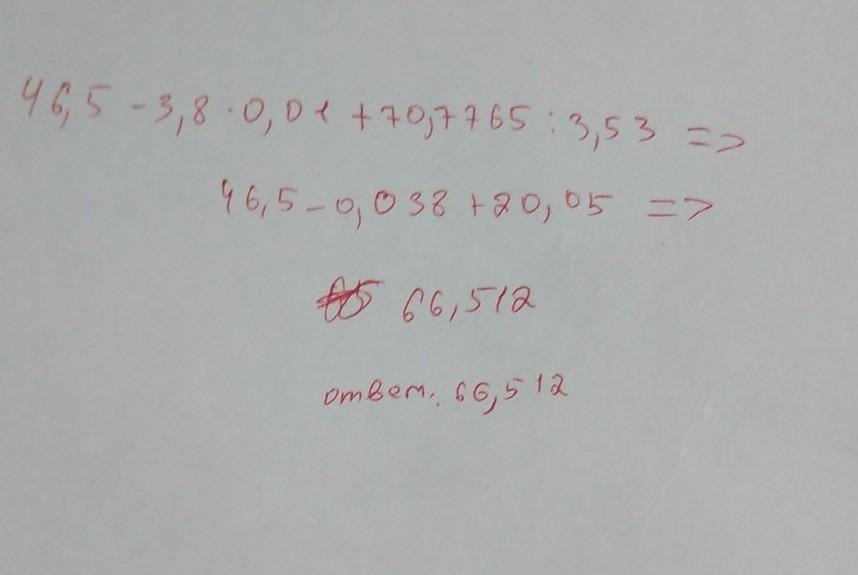 46,5 - 3,8 · 0,01 + 70,7765 : 3,53 =>
46,5 - 0,038 + 20,05 =>
66,512
ответ: 66,512